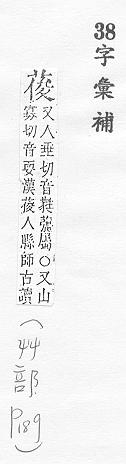 38字彙補
葰
又人垂切音屬○又山
寡切音耍漢葰人縣師古讀
(艸部 P189)